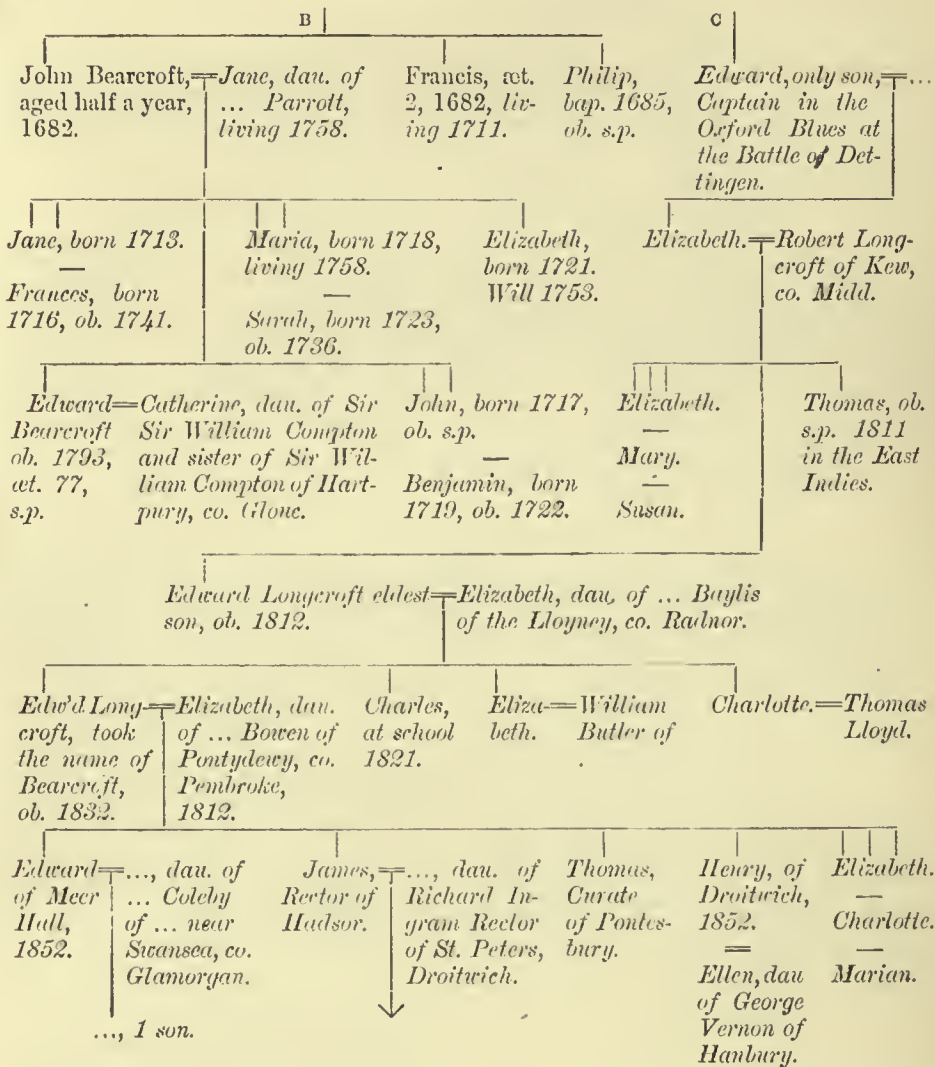 B
C
John Bearcroft,
aged half a year,
1682.
Jane, dau. of
... Parrott,
living 1758.
Francis, æt.
2, 1682, liv-
ing 1711.
Philip,
bap. 1685,
ob. s.p.
Edward, only son, ...
Captain in the
Oxford Blues at
the Battle of Det-
tingen.
Jane, born 1713.
—
Frances, born
1716, ob. 1741.
Maria, born 1718,
living 1758.
—
Sarah, born 1723,
ob. 1736.
Elizabeth,
born 1721.
Will 1753.
Elizabeth.
Robert Long-
croft of Kew,
co. Midd.
Edward
Bearcroft
ob. 1793,
æt. 77,
s.p.
Catherine, dau. of Sir
Sir William Compton
and sister of Sir Wil-
liam Compton of Hart-
pury, co. Glouc.
John, born 1717,
ob. s.p.
—
Benjamin, born
1719, ob. 1722.
Elizabeth.
—
Mary.
—
Susan.
Thomas, ob.
s.p. 1811
in the East
Indies.
Edward Longcroft eldest
son, ob. 1812.
Elizabeth, dau. of ... Baylis
of the Lloyney, co. Radnor.
Edw'd Long-
croft, took
the name of
Bearcroft,
ob. 1832.
Elizabeth, dau.
of ... Bowen of
Pontydewy, co.
Pembroke,
1812.
Charles,
at school
1821.
Eliza-
beth.
William
Butler of
.
Charlotte.
Thomas
Lloyd.
Edward
of Meer
Hall,
1852.
..., dau. of
... Coleby
of ... near
Swansea, co.
Glamorgan.
..., 1 son.
James,
Rector of
Hadsor.
..., dau. of
Richard In-
gram Rector
of St. Peters,
Droitwich.
Thomas,
Curate
of Pontes-
bury.
Henry, of
Droitwich,
1852.
=
Ellen, dau
of George
Vernon of
Hanbury.
Elizabeth.
—
Charlotte.
—
Marian.